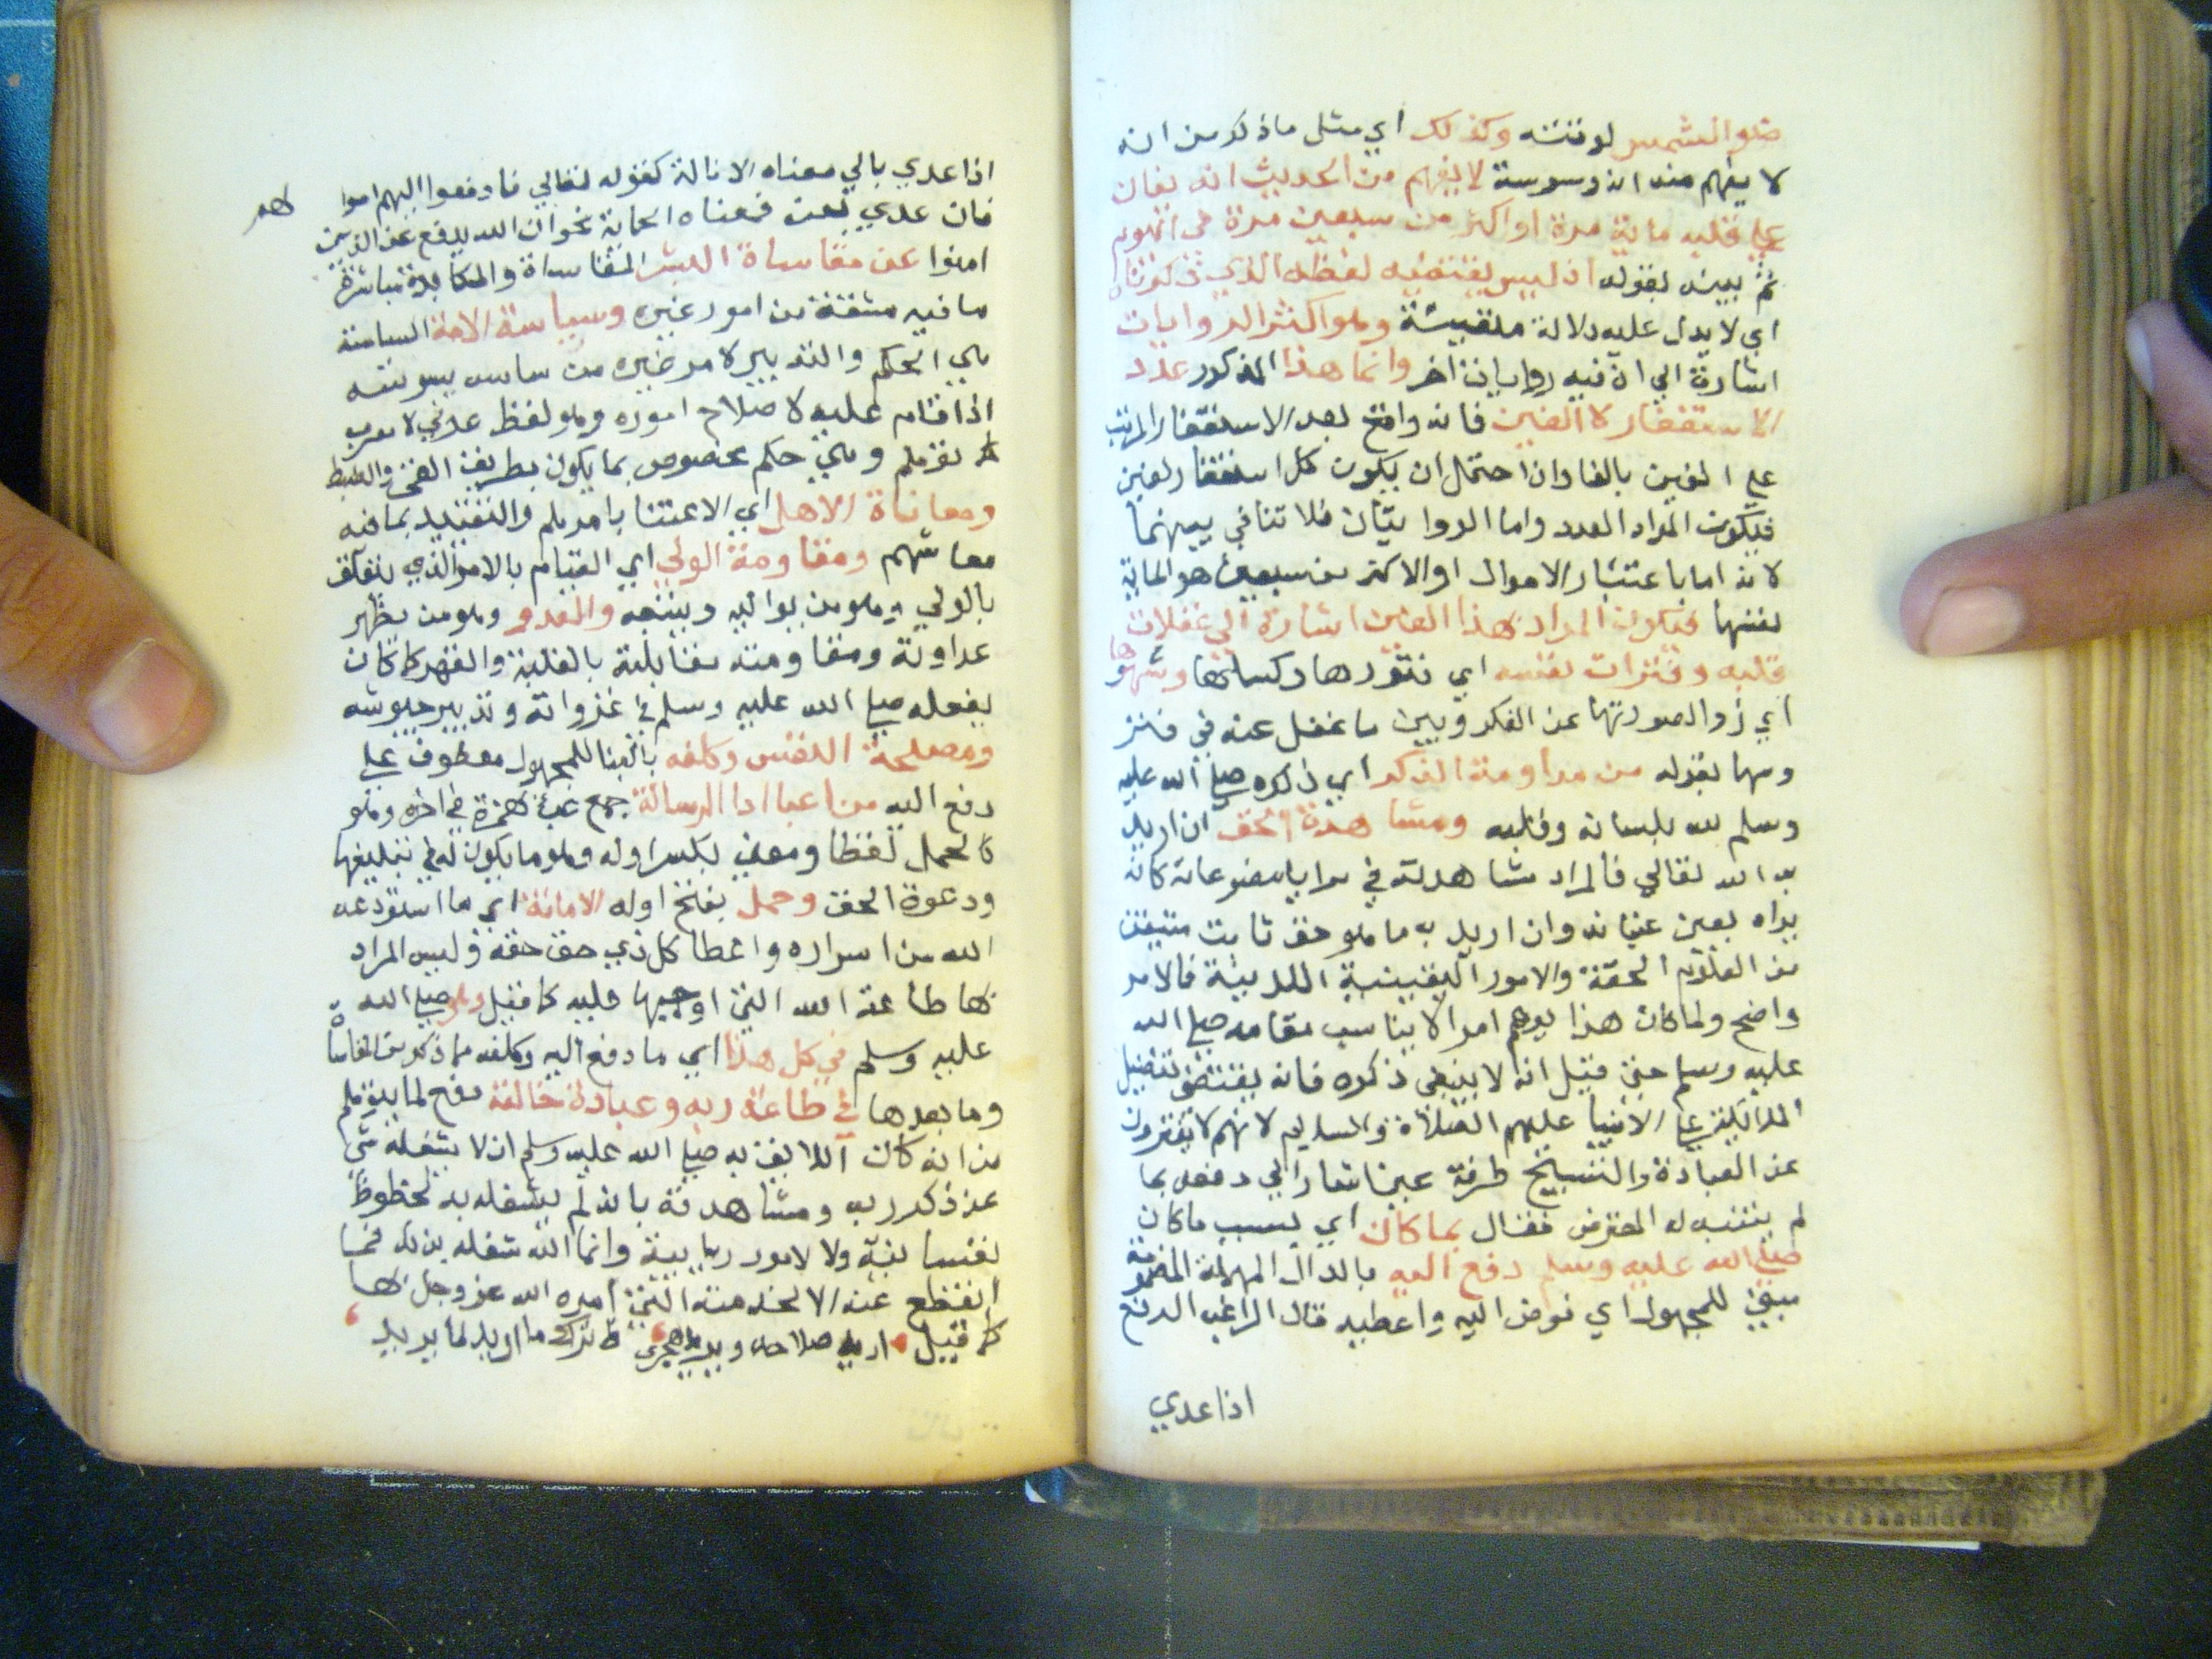 ضوا الشمس لوقتته وكذلك اي مثل ما ذكر من انه
لا يفهم منه انه وسوسة لا يفهم من الحديث انه يغان
علي قلبه ماية مرة او اكثر من سبعين مرة في اليوم
ثم بينه بقوله اذ ليس يقتضيه لفظه الذي ذكرناه
اي لا يدل عليه دلالة وهو اكثر الروايات
اشارة الي ان فيه روايات اخر وانما هذا المذكور عدد
الاستغفار لا الغين فانه واقع بعد الاستغفار المرتب
علي الغين بالفا وان احتمل ان يكون كل استغفار لغين
فيكون المراد العدد واما الروايتان فلا تنافي بينهما
لانه اما باعتبار الاحوال او الاكثر من سبعين هو الماية
نفسها فيكون المراد بهذا الغين اشارة الي غفلات
قلبه وفترات نفسه اي فتورها وكسلها وسهوها
اي زوال صورتها عن الفكر وبين ما غفل عنه في فتر
وسها بقوله من مداومة الذكر اي ذكره صلي الله عليه
وسلم لله بلسانه وقلبه ومشاهدة الحق ان اريد
به الله تعالي فالمراد مشاهدته في مرايا مصنوعاته كانه
يراه بعين عيانه وان اريد به ما هو حق ثابت متيقن
من العلوم الحقة والامور اليقينية اللدنية فالامر
واضح ولما كان هذا يوهم امرا لا يناسب مقامه صلي الله
عليه وسلم حتي قيل انه لا ينبغي ذكره فانه يقتضي تفضيل
الملائكة علي الانبيا عليهم الصلاة والسلام لانهم لا يفترون
عن العبادة والتسبيح طرفة عين اشار الي دفعه بما
لم يتنبه له المعترض فقال بما كان اي بسبب ما كان
صلي الله عليه وسلم دفع اليه بالدال المهملة المضمومة
مبني للمجهول اي فوض اليه واعطيه قال الراغب الدفع
اذا عدي
اذا عدي بالي معناه الانالة كقوله تعالي فادفعوا اليهم اموا لهم
فان عدي بعن فمعناه الحماية نحو ان الله يدفع عن الذين
امنوا عن مقاساة البشر المقاساة والمكابدة مباشرة
ما فيه مشقة من امور غيره وسياسة الامة السياسة
هي الحكم والتدبير لامر غيره من ساس يسوسه
اذا قام عليه لاصلاح اموره وهو لفظ عربي لا معرب
كما توهم وهي حكم مخصوص بما يكون بطريق القهر والضبط
ومعاناة الاهل اي الاعتنا بامرهم والتقييد بما فيه
معاشهم ومقاومة الولي اي القيام بالامر الذي يتعلق
بالولي وهو من يواليه ويتبعه والعدو وهو من يظهر
عداوته ومقاومته مقابلته بالغلبة والقهر كما كان
يفعله صلي الله عليه وسلم في غزواته وتدبير جيوشه
ومصلحة النفس وكلفه بالبنا للمجهول معطوف علي
دفع اليه من اعبا ادا الرسالة جمع عبئ بهمزة في اخره وهو
كالحمل لفظا ومعني بكسر اوله وهو ما يكون له في تبليغها
ودعوة الحق وحمل بفتح اوله الامانة اي ما استودعه
الله من اسراره واعطا كل ذي حق حقه وليس المراد
بها طاعة الله التي اوجبها عليه كما قيل وهو صلي الله
عليه وسلم في كل هذا اي ما دفع اليه وكلفه مما ذكر من المقاساة
وما بعدها في طاعة ربه وعبادة خالقه دفع لما يتوهم
من انه كان اللايق به صلي الله عليه وسلم ان لا يشغله شي
عن ذكر ربه ومشاهدته بانه لم يشغله به لحظوظ
نفسانية ولا لامور ربانية وانما الله شغله بذلك فما
انقطع عنه الا لخدمته التي امره الله عز وجل بها
كما قيل اريد صلاحه ويريد هجري فاترك ما اريد لما يريد